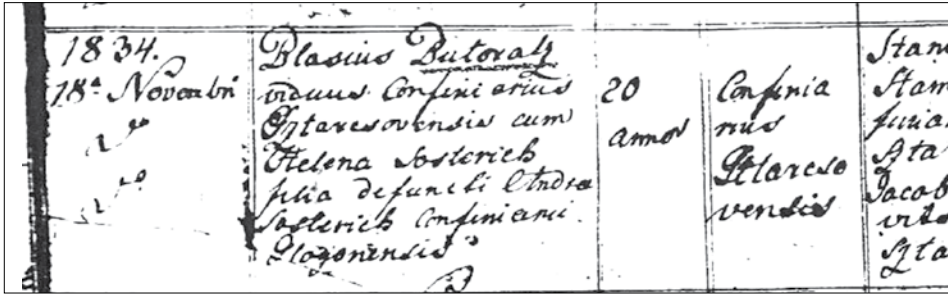 1834.
18ª Novembri
Blasius Butoratz
viduus Confiniarius
Sztaresovensis cum
Helena Sosterich
filia defuncti Andrea
Sosterich Confiniarii
Glogonensis
20
annos
Confinia
rius
Sztareso
vensis
Stam
Stam
Szta
Jacob
Szta